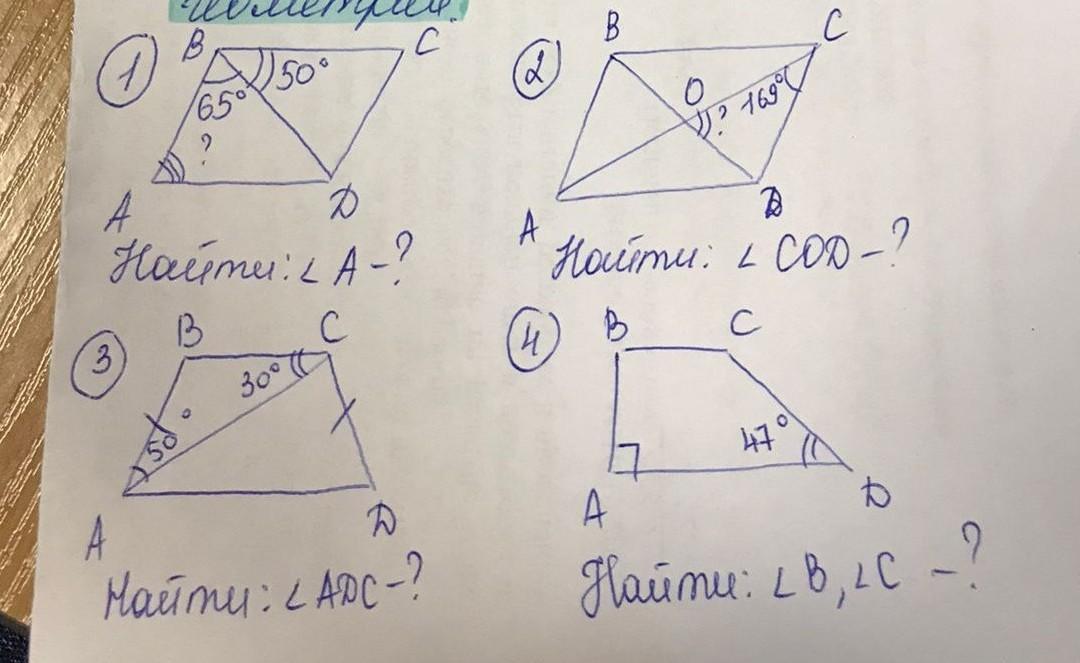 геометрия.
1 B C 50° 65° ? A D
Найти: ∠ A - ?
2 B C O ? 169° A D
Найти: ∠ COD - ?
3 B C 30° 50° A D
Найти: ∠ ADC - ?
4 B C 47° A D
Найти: ∠ B, ∠ C - ?